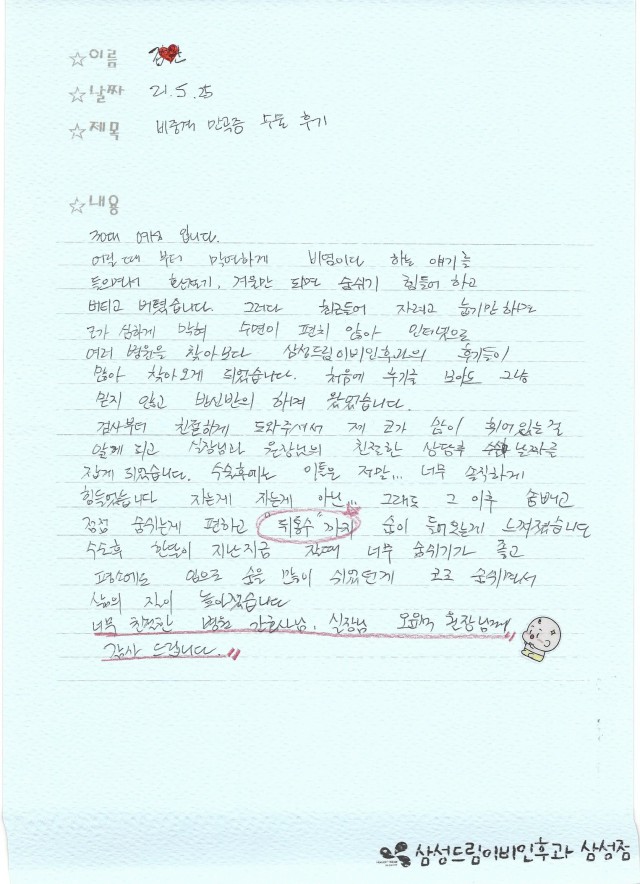 ☆이름
☆날짜 21. 5. 25
☆제목 비중격 만곡증 수술 후기
☆내용
30대 여성 입니다.
어릴 때 부터 막연하게 비염이다 하는 얘기를
들으면서 환절기, 겨울만 되면 숨쉬기 힘들어 하고
버티고 버텼습니다. 그러다 최근들어 자려고 눕기만 하면
코가 심하게 막혀 수면이 편치 않아 인터넷으로
여러 병원을 찾아보다 삼성드림이비인후과의 후기들이
많아 찾아오게 되었습니다. 처음에 후기를 보아도 그냥
믿지 않고 반신반의 하며 왔었습니다.
검사부터 친절하게 도와주셔서 제 코가 많이 휘어있는걸
알게 되고 실장님과 원장님의 친절한 상담후 수술 날짜를
잡게 되었습니다. 수술후에는 이틀은 정말... 너무 솔직하게
힘들었습니다 자는게 자는게 아닌... 그래도 그 이후 솜빼고
점점 숨쉬는게 편하고 "뒤통수"까지 숨이 들어오는게 느껴졌습니다
수술후 한달이 지난지금 잘때 너무 숨쉬기가 좋고
평소에도 입으로 숨을 많이 쉬었던게 코로 숨쉬면서
삶의 질이 높아졌습니다
너무 친절한 병원 간호사님, 실장님 원장님께
감사 드립니다.
삼성드림이비인후과 삼성점